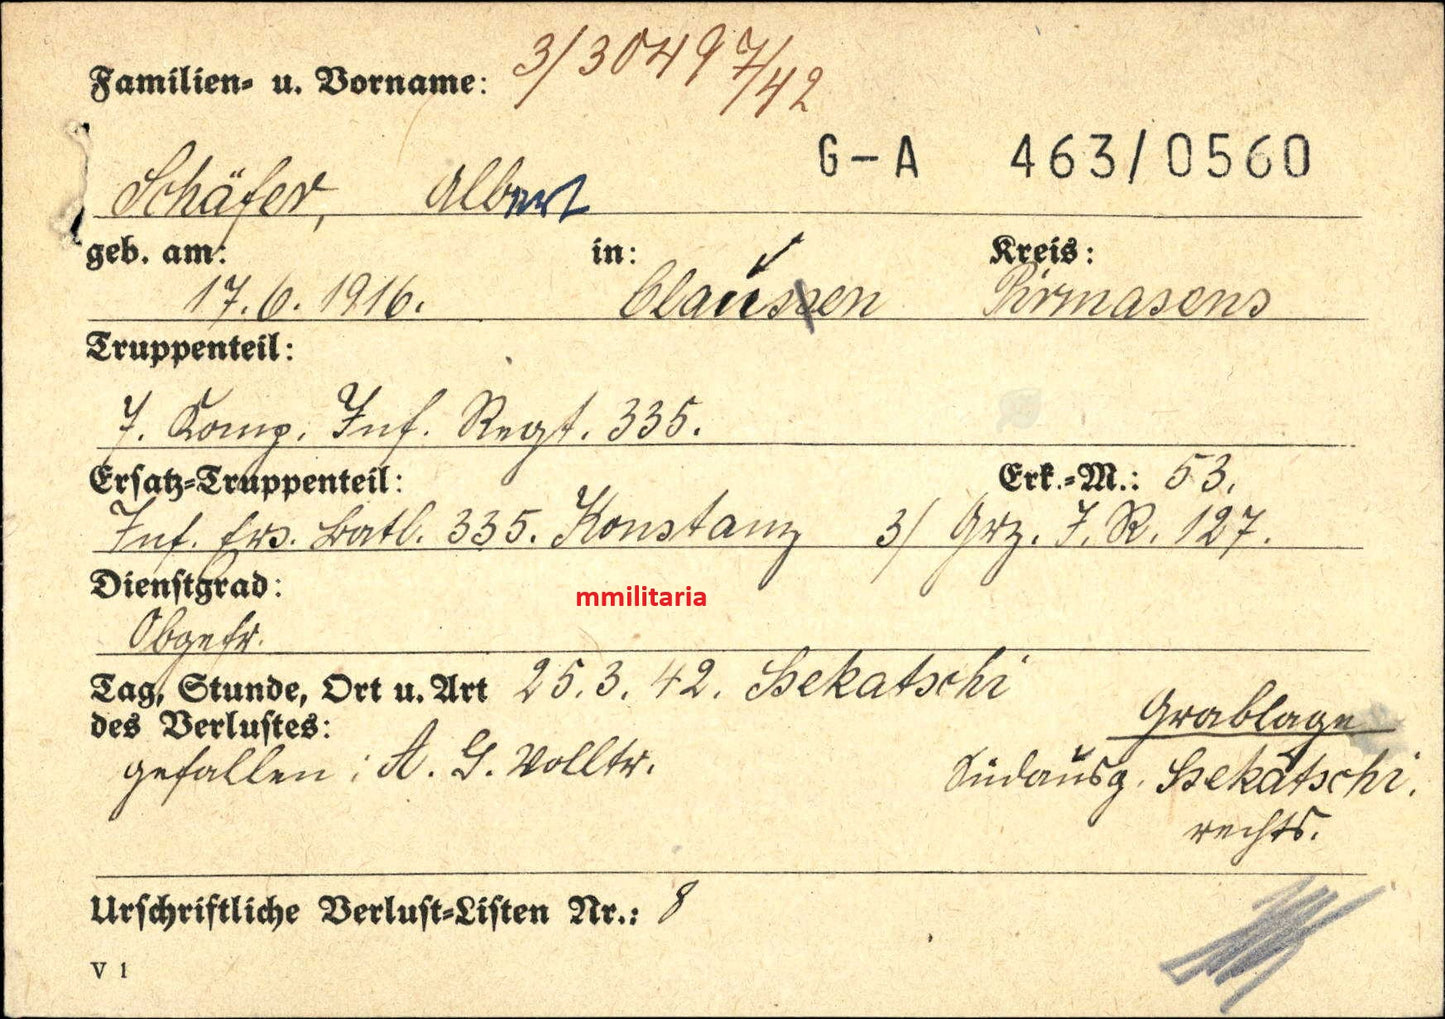 Familien- u. Vorname: 3/30497/42
G-A 463/0560
Schäfer, Albert
geb. am: in: Kreis:
17.6.1916. Claussen Pirmasens
Truppenteil:
7. Komp. Inf. Regt. 335.
Ersatz-Truppenteil: Erk.-M.: 53.
Inf. Ers. Batl. 335. Konstanz 3/ Grz. I.R. 127.
Dienstgrad:
mmilitaria
Obgefr.
Tag, Stunde, Ort u. Art 25.3.42. Ssekatschi
des Verlustes: Grablage
gefallen; A. G. Volltr. Südausg. Ssekatschi.
rechts.
Urschriftliche Verlust-Listen Nr.: 8
V 1